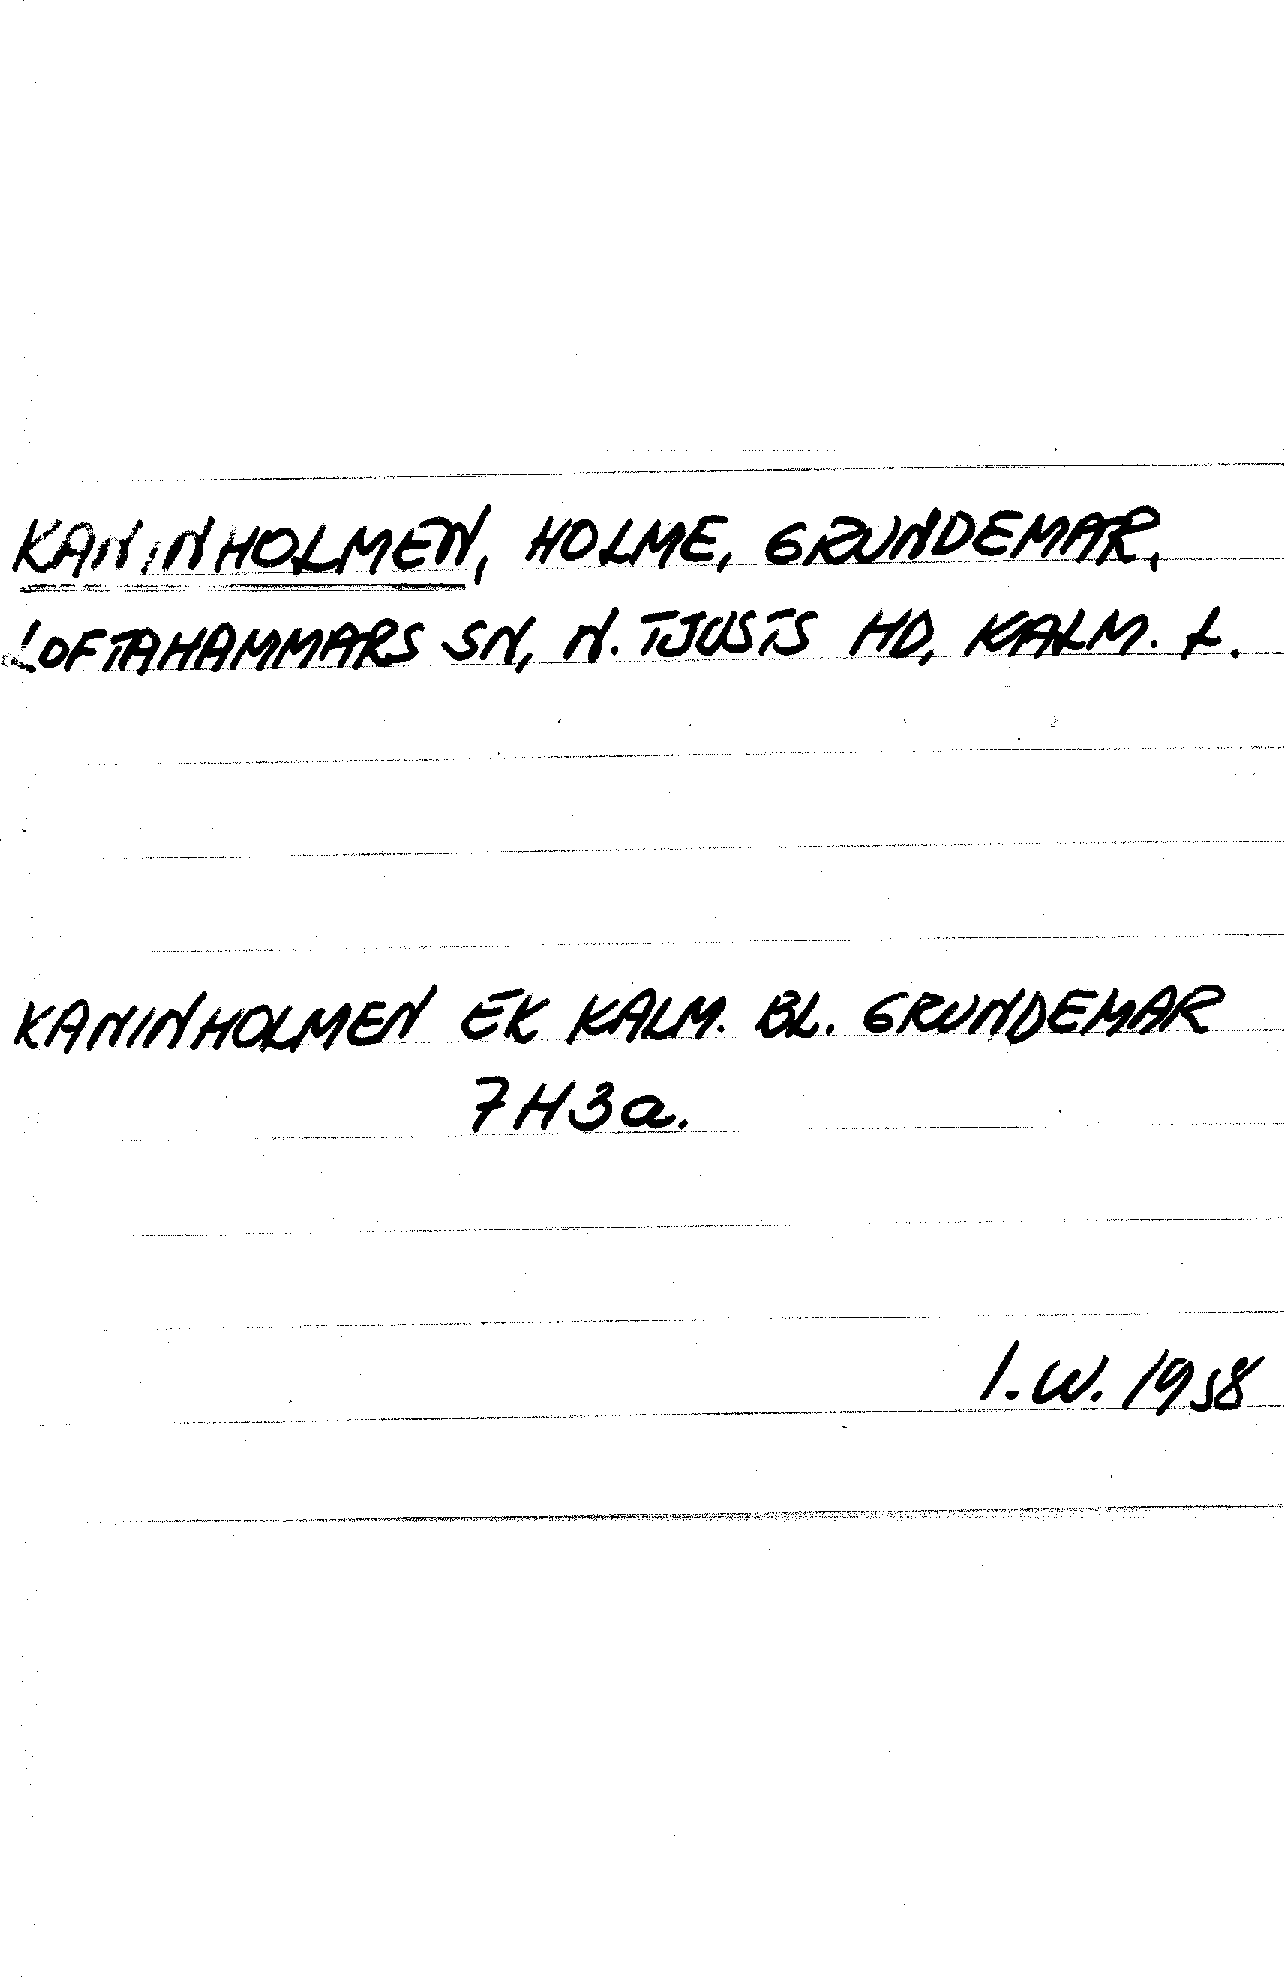 KANINHOLMEN, HOLME, GRUNDEMAR,
LOFTAHAMMARS SN, N. TJUSTS HD, KALM. L.
KANINHOLMEN EK KALM. BL. GRUNDEMAR
7H3a.
I.W. 1958